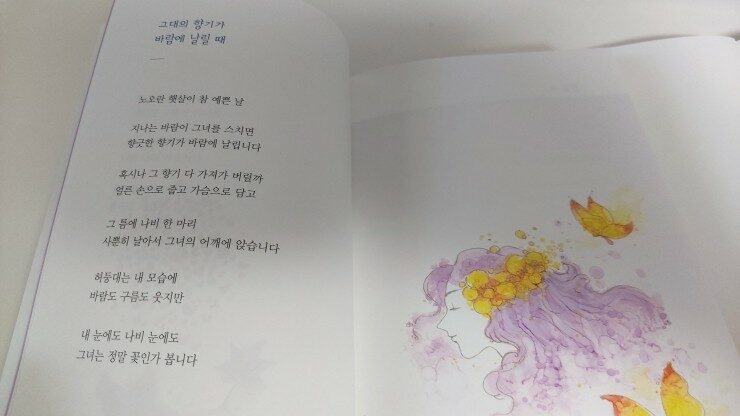 그대의 향기가
바람에 날릴 때
노오란 햇살이 참 예쁜 날
지나는 바람이 그녀를 스치면
향긋한 향기가 바람에 날립니다
혹시나 그 향기 다 가져가 버릴까
얼른 손으로 줍고 가슴으로 담고
그 틈에 나비 한 마리
사뿐히 날아서 그녀의 어깨에 앉습니다
허둥대는 내 모습에
바람도 구름도 웃지만
내 눈에도 나비 눈에도
그녀는 정말 꽃인가 봅니다